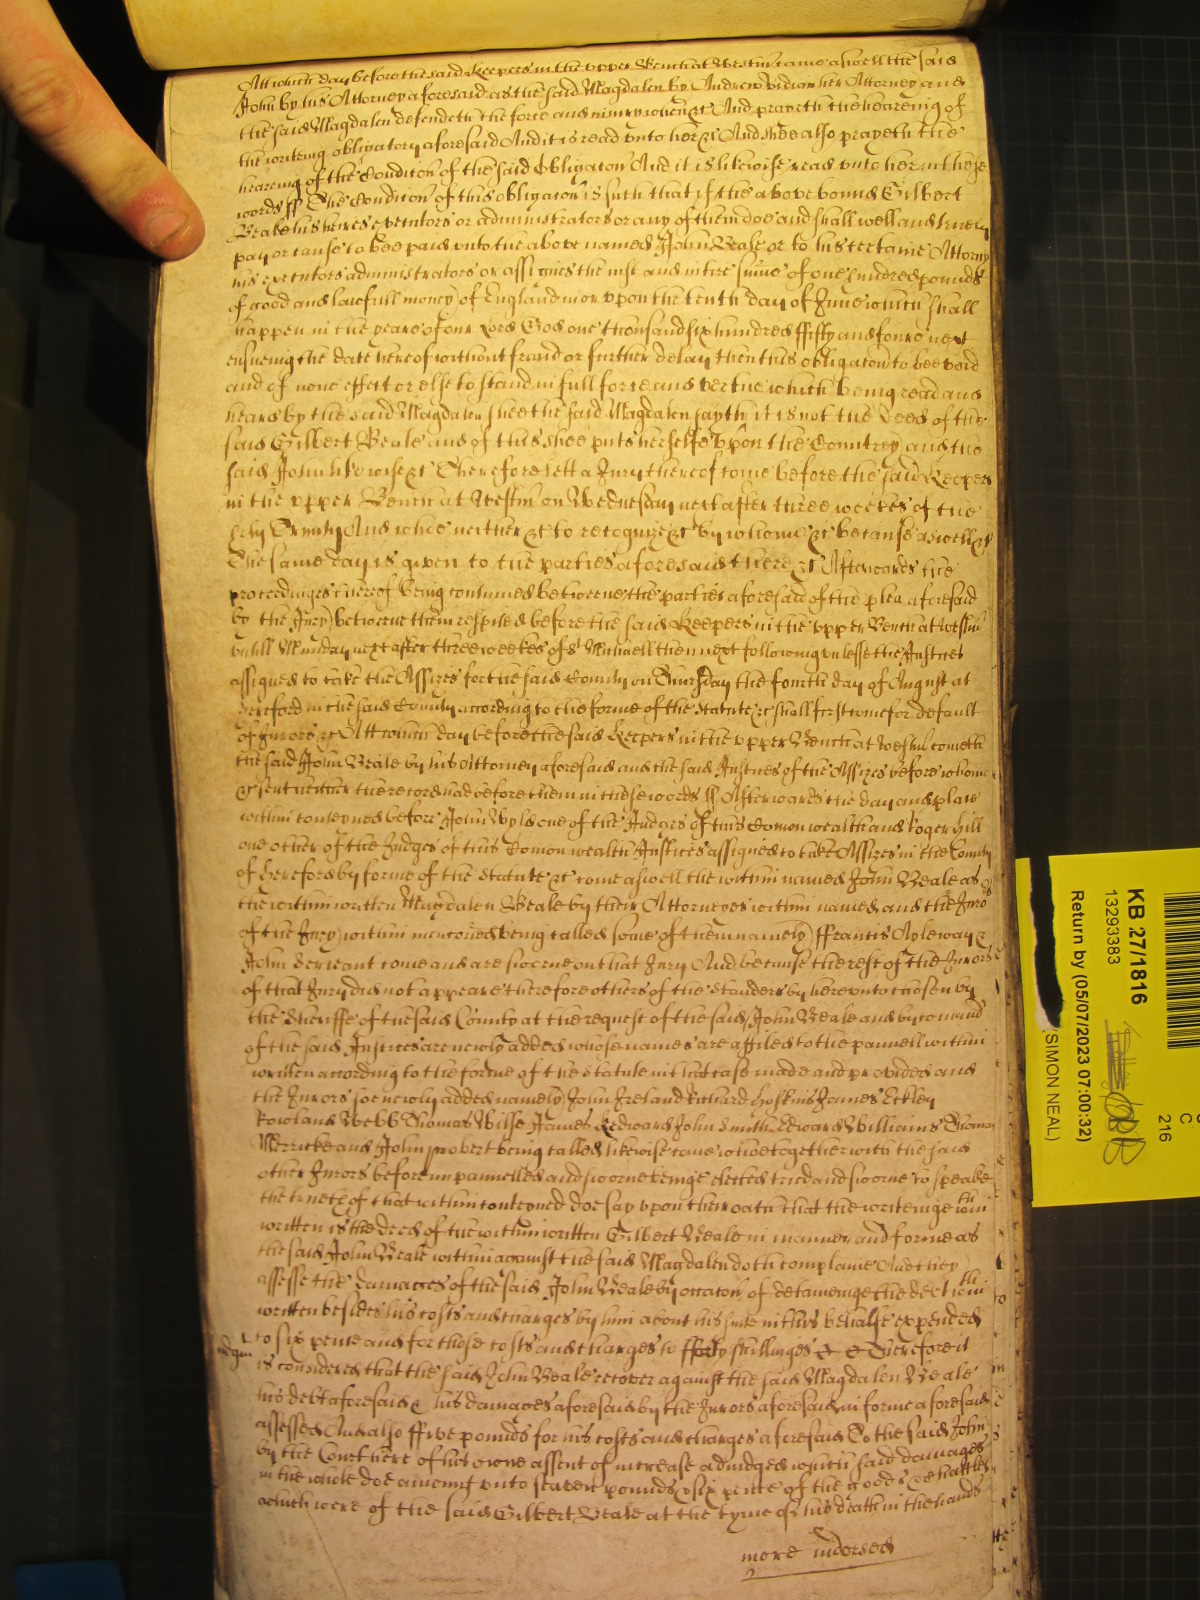 Att which day before the said Keepers in the upper Bench at Westm came aswell the said
John by his Attorney aforesaid as the said Magdalen by Andrew Vidian her Attorney and
the said Magdalen defendeth the force and iniury when &c And prayeth the heareing of
the writing obligatory aforesaid And it is read unto her &c And shee also prayeth the
hearing of the Condicon of the said Obligacon And it is likewise read unto her in these
words ss The Condicon of this obligacon is such that if the above bound Gilbert
Beale his heires executors or administrators or any of them doe and shall well and truely
pay or cause to bee paid unto the above named John Beale or to his certaine Attorny
his executors administrators or assignes the iust and intire sume of one hundred pounds
of good and lawfull money of England in or upon the tenth day of June which shall
happen in the yeare of our Lord God one thousand six hundred fifty and foure next
ensueing the date hereof without fraud or further delay then this obligacon to bee void
and of none effect or else to stand in full force and vertue which being read and
heard by the said Magdalen shee the said Magdalen sayth it is not the deed of the
said Gilbert Beale and of this shee puts herselfe upon the Countrey and the
said John likewise &c Therefore lett a Jury thereof come before the said Keepers
in the upper Bench at Westm on Wednesday next after three weekes of the
holy Trinity And whoe neither &c to recognize &c by whome &c because aswell &c
The same day is given to the parties aforesaid there &c Afterwards the
proceedinges thereof being continued betweene the parties aforesaid of the plea aforesaid
by the Jury betweene them respited before the said Keepers in the upper Bench at Westm
untill Munday next after three weekes of St Michaell then next following unlesse the Justices
assigned to take the Assizes for the said County on Thursday the fourth day of August at
Hereford in the said County according to the forme of the Statute &c shall first come for default
of Jurors &c Att which day before the said Keepers in the upper Bench at Westm cometh
the said John Beale by his Attorney aforesaid and the said Justices of the Assizes before whome
&c sent hither there record had before them in these words ss Afterwards the day and place
within conteyned before John Wylde one of the Judges of this Comon wealth and Roger Hill
one other of the Judges of this Comon wealth Justices assigned to take Assizes in the County
of Hereford by forme of the Statute &c come aswell the within named John Beale as
the within written Magdalen Beale by their Attorneyes within named and the Juro
of the Jury within menconed being called some of them namely Francis Ayleway &
John Serieant come and are sworne on that Jury And because the rest of the Jurors
of that Jury did not appeare therefore others of the standers by hereunto chosen by
the Sheriffe of the said County at the request of the said John Beale and by comand
of the said Justices are newly added whose names are affiled to the pannell within
written according to the forme of the Statute in that case made and provided and
the Jurors soe newly added namely John Ireland Richard Hoskins James Eckley
Rowland Webb Thomas Wilse James Kedward John Smith Edward Williams Thomas
Merricke and John probert being called likewise came whoe together with the said
other Jurors before impannelled and sworne beinge elected tried and sworne to speake
the trueth of that within conteyned doe say upon their oath that the writeinge within
written is the deed of the within written Gilbert Beale in manner and forme as
the said John Beale within against the said Magdalen doth complaine And they
assesse the damages of the said John Beale by occacon of deteineinge the debt within
written besides his costs and charges by him about his suite in this behalfe expended
to six pence and for those costs and charges to forty shillinges & c Therefore it
is considered that the said John Beale recover against the said Magdalen Beale
his debt aforesaid & his damages aforesaid by the Jurors aforesaid in forme aforesaid
assessed And also ffive pounds for his costs and charges aforesaid To the said John
by the Court here of his owne assent of increase adiudged which said damages
in the whole doe amount unto seaven pounds & six pence of the goods & chattles
which were of the said Gilbert Beale at the tyme of his death in the hands
more indorsed
KB 27/1816
13293383
Return by (05/07/2023 07:00:32)
(SIMON NEAL)
C
216